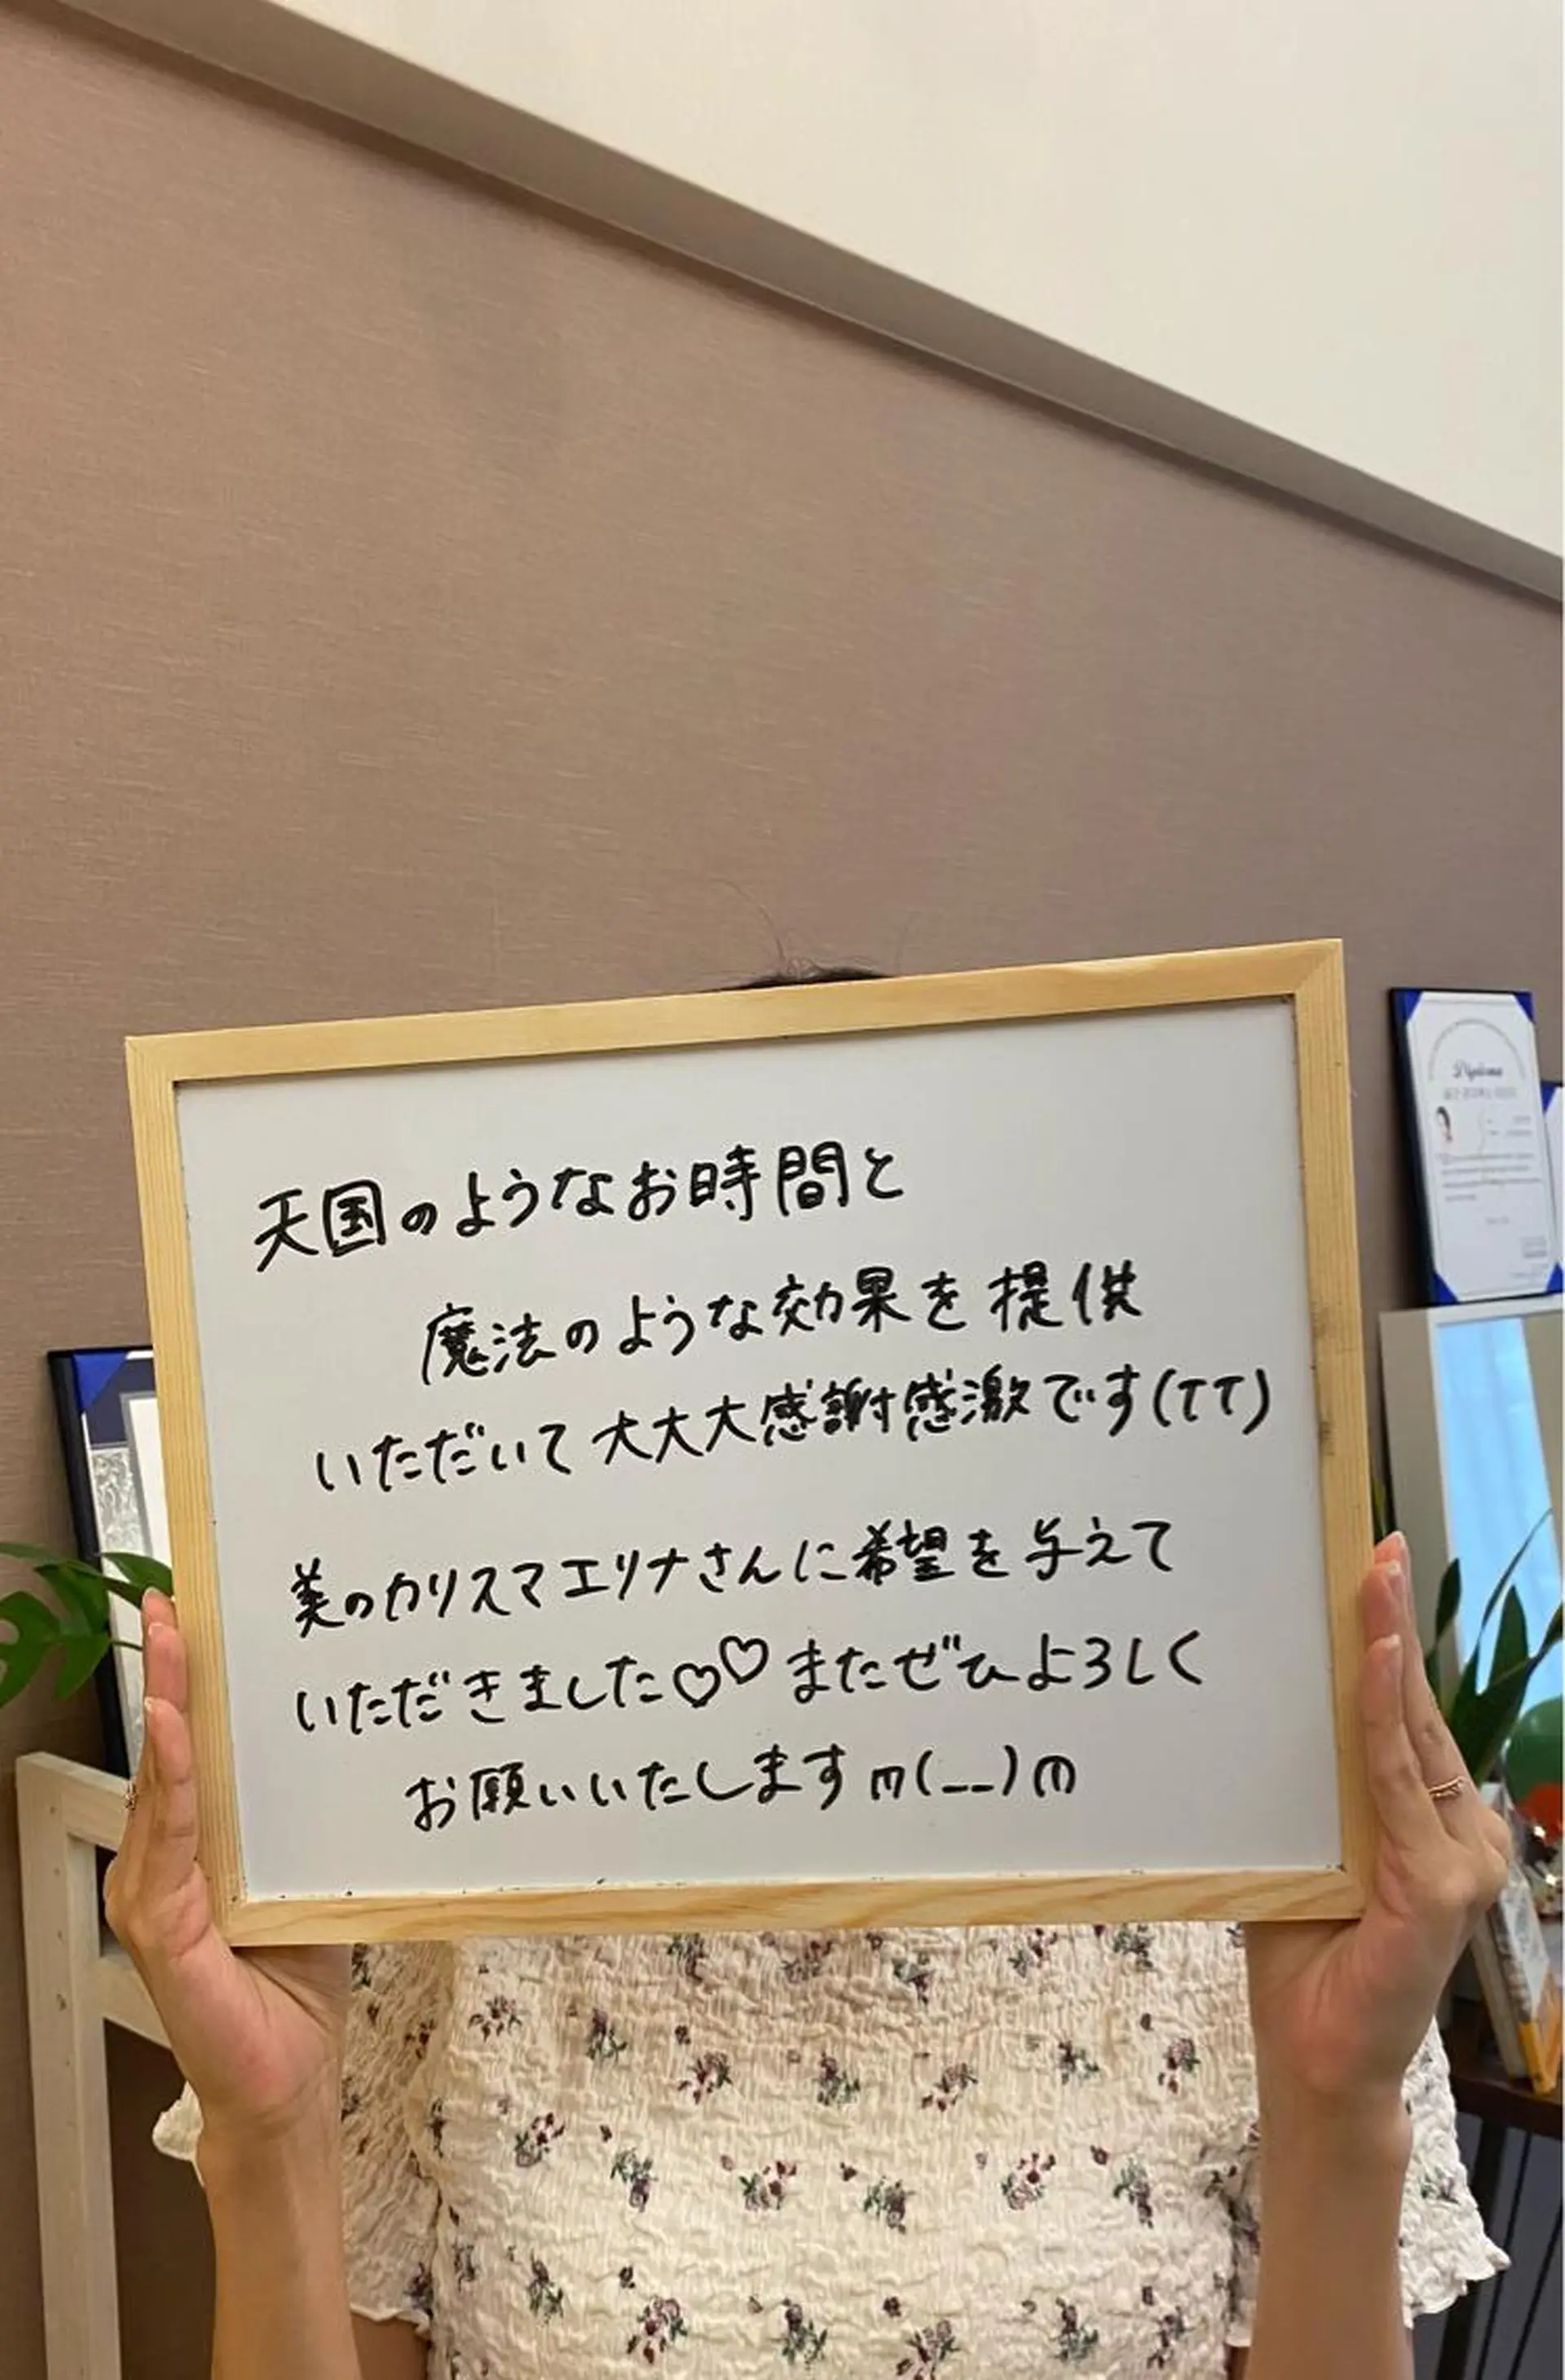 天国のようなお時間と
魔法のような効果を提供
いただいて大大大感謝感激です(TT)
美のカリスマエリナさんに希望を与えて
いただきました♡♡またぜひよろしく
お願いいたしますm(__)m
Diploma